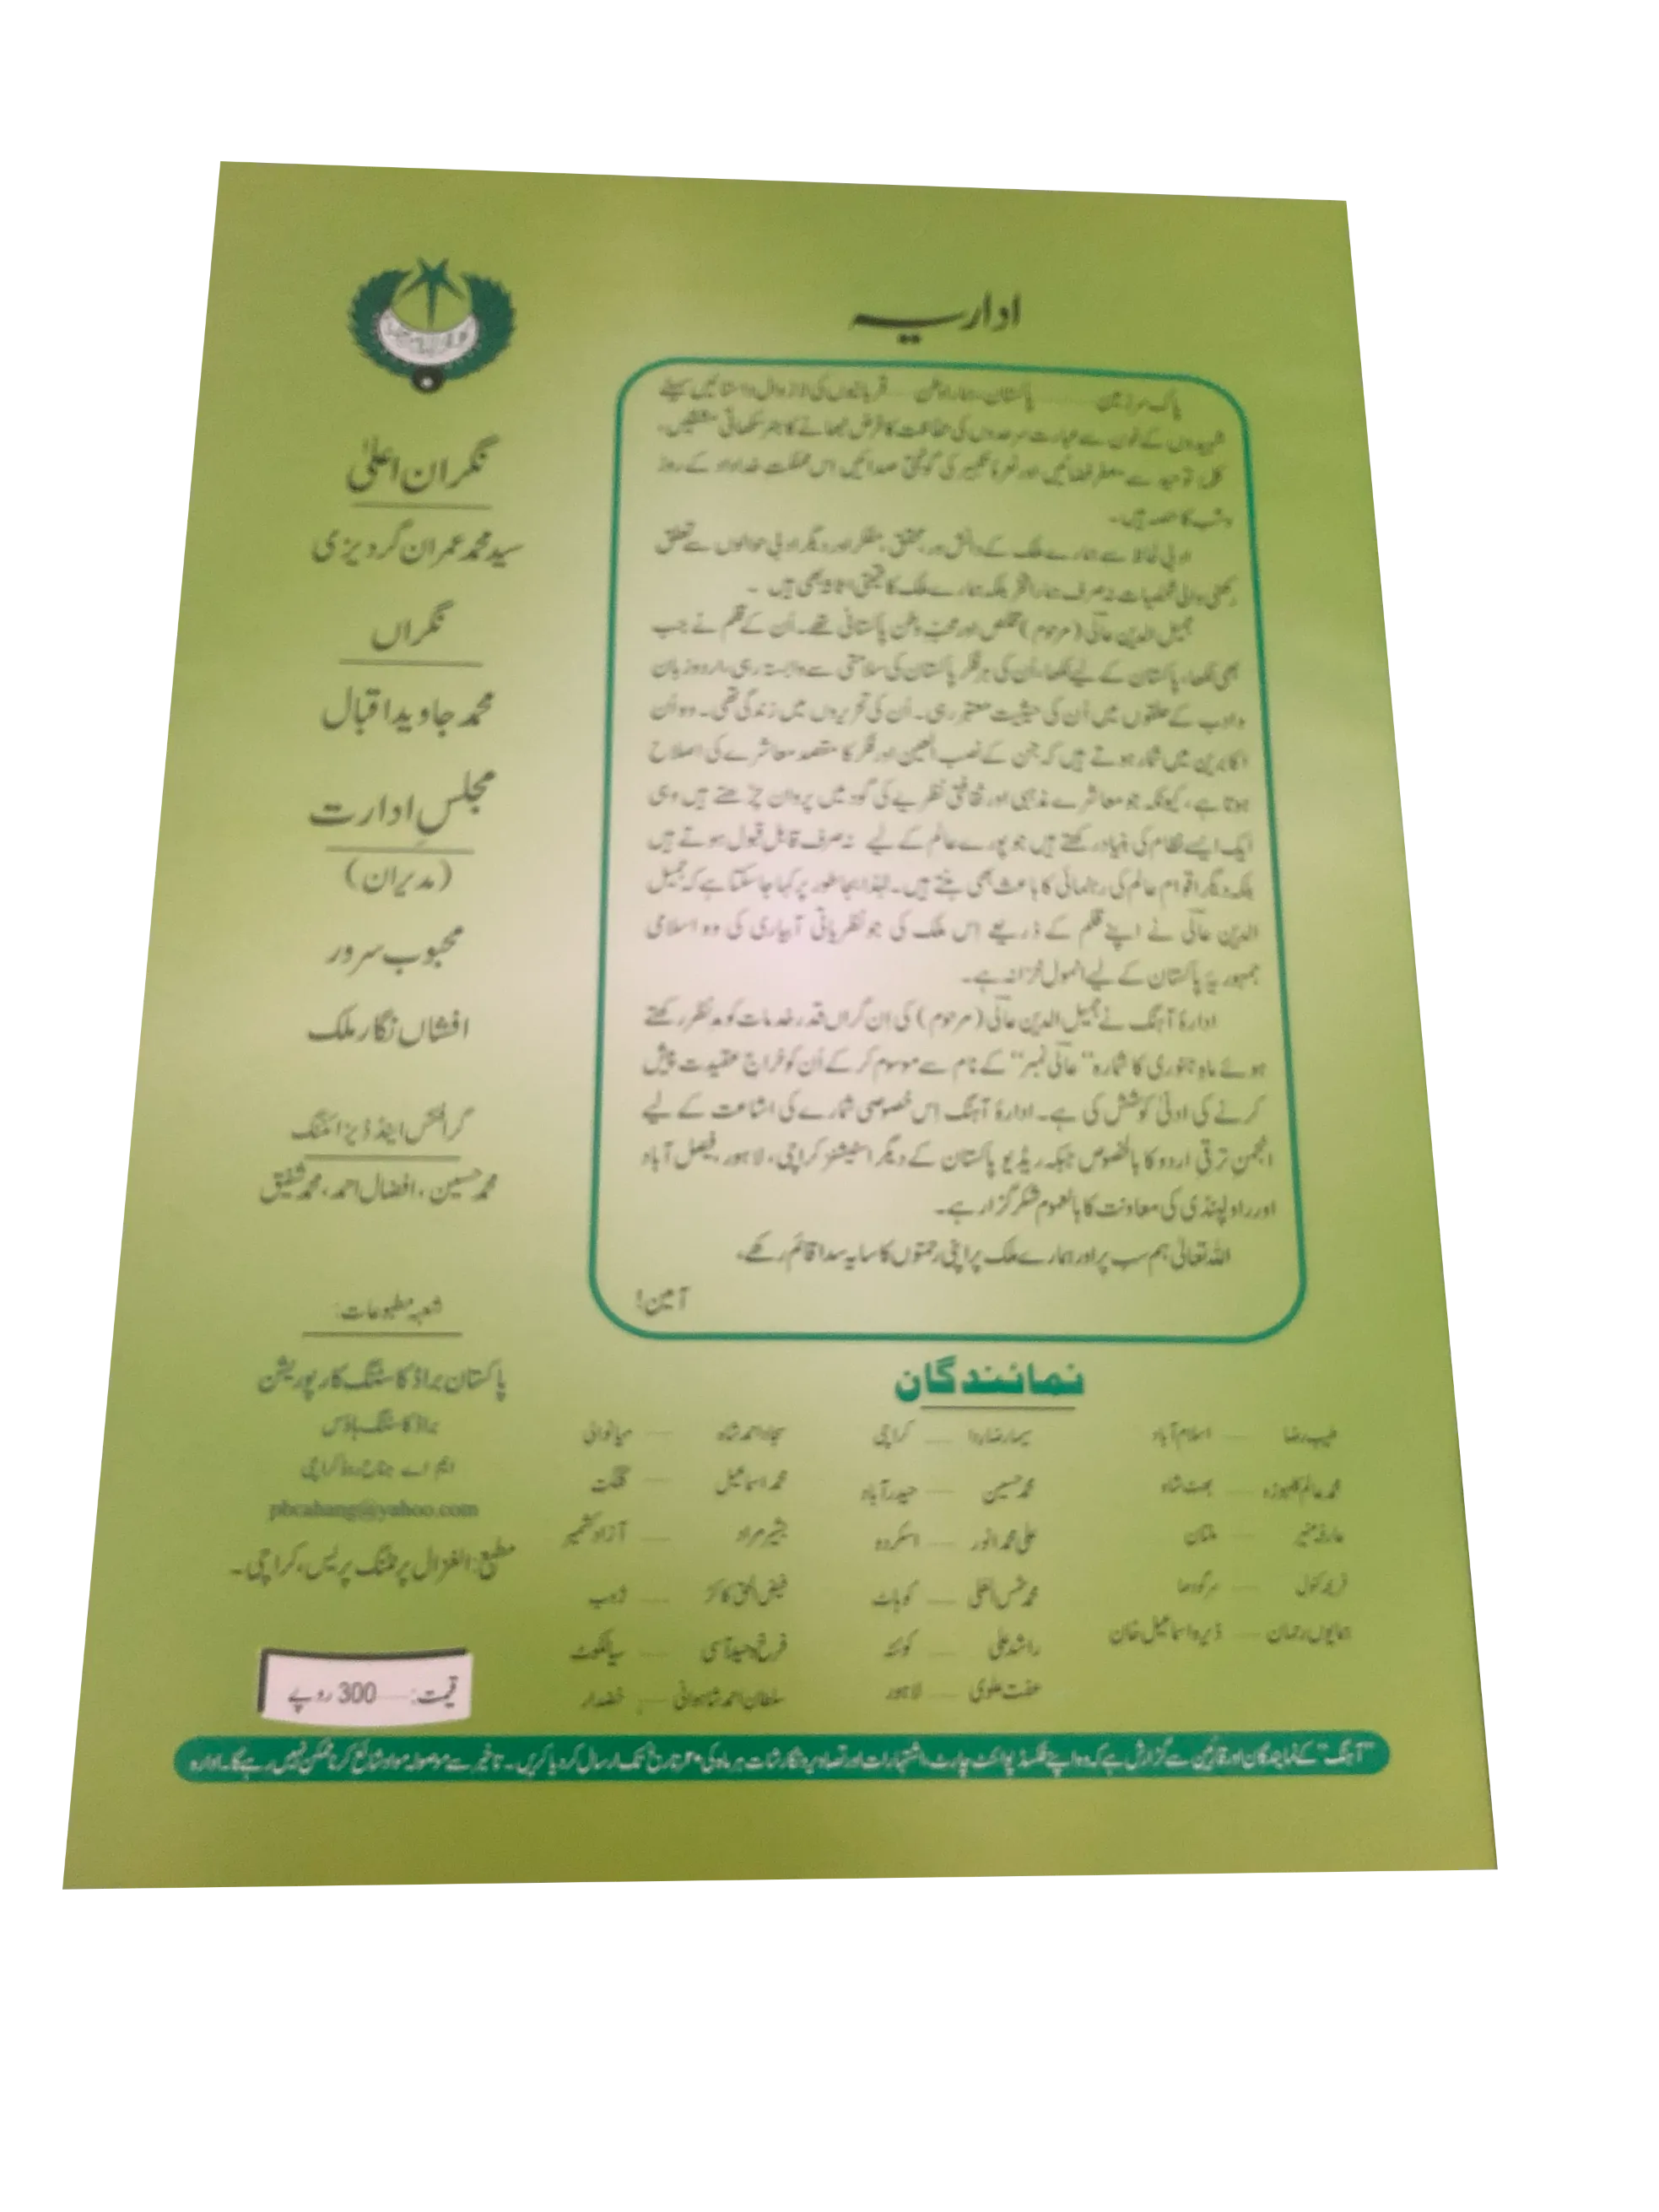 اداریہ
پاک سرزمین ...... پاکستان، ہمارا وطن ...... قربانیوں کی لازوال داستانیں سمیٹے
شہیدوں کے خون سے عبارت سرحدوں کی حفاظت کا فرض نبھانے کا ہنر سکھاتی مشقیں،
کلمۂ توحید سے معطر فضائیں اور نعرۂ تکبیر کی گونجتی صدائیں اس مملکتِ خداداد کے روز
و شب کا حصہ ہیں۔
ادبی لحاظ سے ہمارے ملک کے دانش ور، محقق، مفکر اور دیگر ادبی حوالوں سے تعلق
رکھنے والی شخصیات نہ صرف ہمارا فخر بلکہ ہمارے ملک کا قیمتی اثاثہ بھی ہیں ۔
جمیل الدین عالی (مرحوم) مخلص اور محبِ وطن پاکستانی تھے۔ اُن کے قلم نے جب
بھی لکھا، پاکستان کے لیے لکھا، اُن کی ہر فکر پاکستان کی سلامتی سے وابستہ رہی، اردو زبان
و ادب کے حلقوں میں اُن کی حیثیت معتبر رہی۔ اُن کی تحریروں میں زندگی تھی۔ وہ اُن
اکابرین میں شمار ہوتے ہیں کہ جن کے نصب العین اور فکر کا مقصد معاشرے کی اصلاح
ہوتا ہے، کیونکہ جو معاشرے مذہبی اور ثقافتی نظریے کی گود میں پروان چڑھتے ہیں وہی
ایک ایسے نظام کی بنیاد رکھتے ہیں جو پورے عالم کے لیے نہ صرف قابلِ قبول ہوتے ہیں
بلکہ دیگر اقوامِ عالم کی رہنمائی کا باعث بھی بنتے ہیں۔ لہٰذا بجا طور پر کہا جا سکتا ہے کہ جمیل
الدین عالی نے اپنے قلم کے ذریعے اِس ملک کی جو نظریاتی آبیاری کی وہ اسلامی
جمہوریۂ پاکستان کے لیے انمول خزانہ ہے۔
ادارۂ آہنگ نے جمیل الدین عالی (مرحوم) کی اِن گراں قدر خدمات کو مدِنظر رکھتے
ہوئے ماہِ جنوری کا شمارہ "عالی نمبر" کے نام سے موسوم کر کے اُن کو خراجِ عقیدت پیش
کرنے کی ادنیٰ کوشش کی ہے۔ ادارۂ آہنگ اِس خصوصی شمارے کی اشاعت کے لیے
انجمن ترقیِ اردو کا بالخصوص جبکہ ریڈیو پاکستان کے دیگر اسٹیشنز کراچی، لاہور، فیصل آباد
اور راولپنڈی کی معاونت کا بالعموم شکر گزار ہے۔
اللہ تعالیٰ ہم سب پر اور ہمارے ملک پر اپنی رحمتوں کا سایہ سدا قائم رکھے،
آمین!
نگران اعلیٰ
سید محمد عمران گردیزی
نگراں
محمد جاوید اقبال
مجلسِ ادارت
(مدیران)
محبوب سرور
افشاں نگار ملک
گرافکس اینڈ ڈیزائننگ
محمد حسین، افضال احمد، محمد شفیق
شعبہ مطبوعات:
پاکستان براڈ کاسٹنگ کارپوریشن
براڈ کاسٹنگ ہاؤس
ایم اے جناح روڈ کراچی
pbcahang@yahoo.com
مطبع: الغزال پرنٹنگ پریس، کراچی۔
قیمت: ...... 300 روپے
نمائندگان
طیب رضا ...... اسلام آباد
محمد عالم کلہوڑہ ...... بھٹ شاہ
عارفہ منیر ...... ملتان
فرید کنول ...... سرگودھا
ہمایوں رحمان ...... ڈیرہ اسماعیل خان
سیما رضا ردا ...... کراچی
محمد حسین ...... حیدرآباد
علی محمد انور ...... اسکردو
محمد شمس ...... کوہاٹ
راشد علی ...... کوئٹہ
عفت علوی ...... لاہور
سجاد احمد شاہ ...... میانوالی
محمد اسماعیل ...... گلگت
بشیر مراد ...... آزاد کشمیر
فیض الحق کاکڑ ...... ژوب
فرخ وحید آسی ...... سیالکوٹ
سلطان احمد شاہوانی ...... خضدار
"آہنگ" کے نمائندگان اور قارئین سے گزارش ہے کہ وہ اپنے فکسڈ پوائنٹ چارٹ، اشتہارات اور تصاویر و نگارشات ہر ماہ کی تاریخ تک ارسال کر دیا کریں۔ تاخیر سے موصولہ مواد شائع کرنا ممکن نہیں رہے گا۔ ادارہ